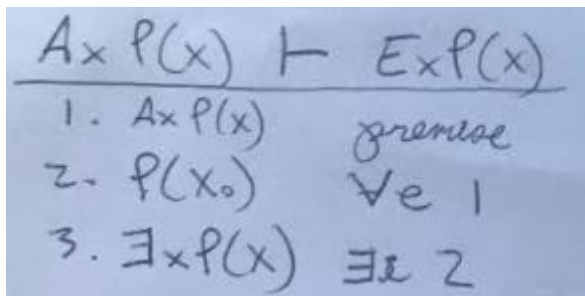 Ax P(x) ⊢ Ex P(x)
1. Ax P(x) premise
2. P(x₀) ∀e 1
3. ∃x P(x) ∃i 2